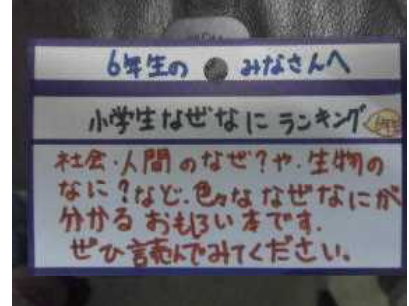 6年生の みなさんへ
小学生なぜなに ランキング
社会・人間のなぜ?や、生物の
なに?など、色々ななぜなにが
分かるおもしろい本です.
ぜひ読んでみてください。